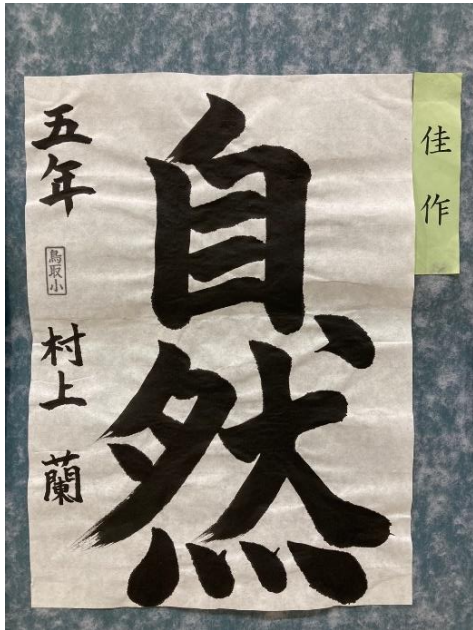 佳作
自然
五年 鳥取小 村上 蘭